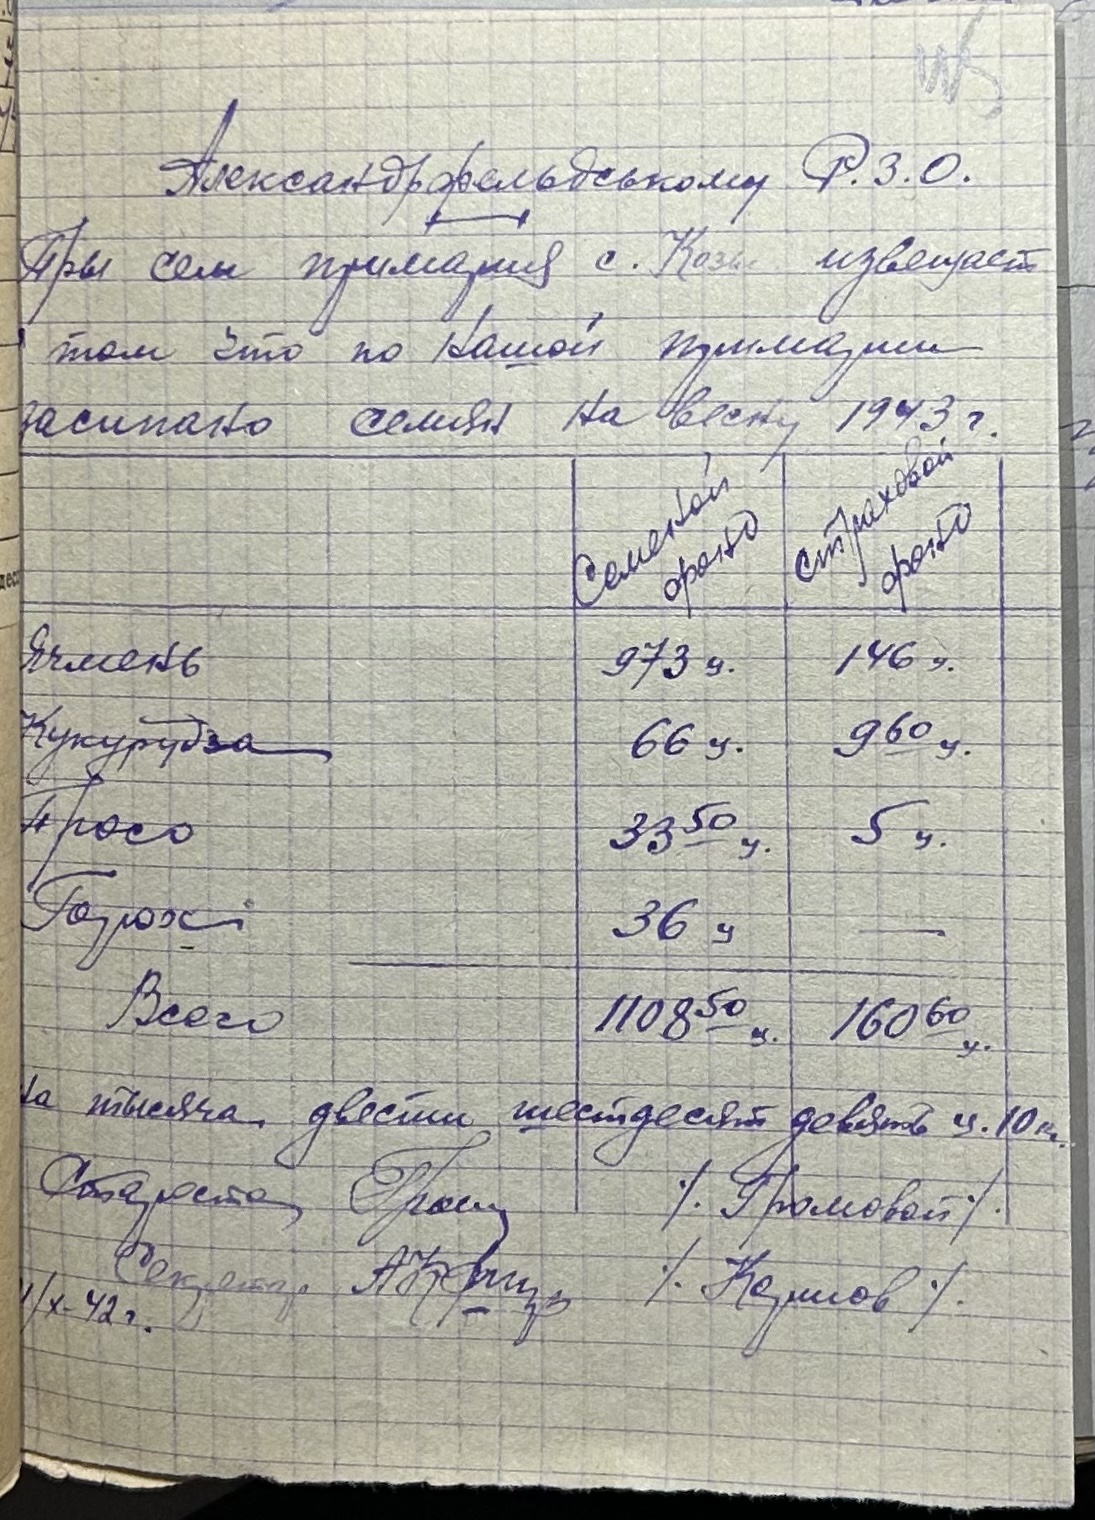 Александрфельдському Р.З.О.
При сем примария с. Козы извещает
том что по нашой примарии
засипано семян на весну 1943 г.
Семеной фонд
страховой фонд
Ячмень 973 ц. 146 ц.
Кукурудза 66 ц. 9 60 ц.
Просо 33 50 ц. 5 ц.
Горох 36 ц —
Всего 1108 50 ц. 160 60 ц.
На тысяча двести шестдесят девять ц. 10 кг.
Староста /. Громовой /.
Секретар /. Карпов /.
/X-42 г.